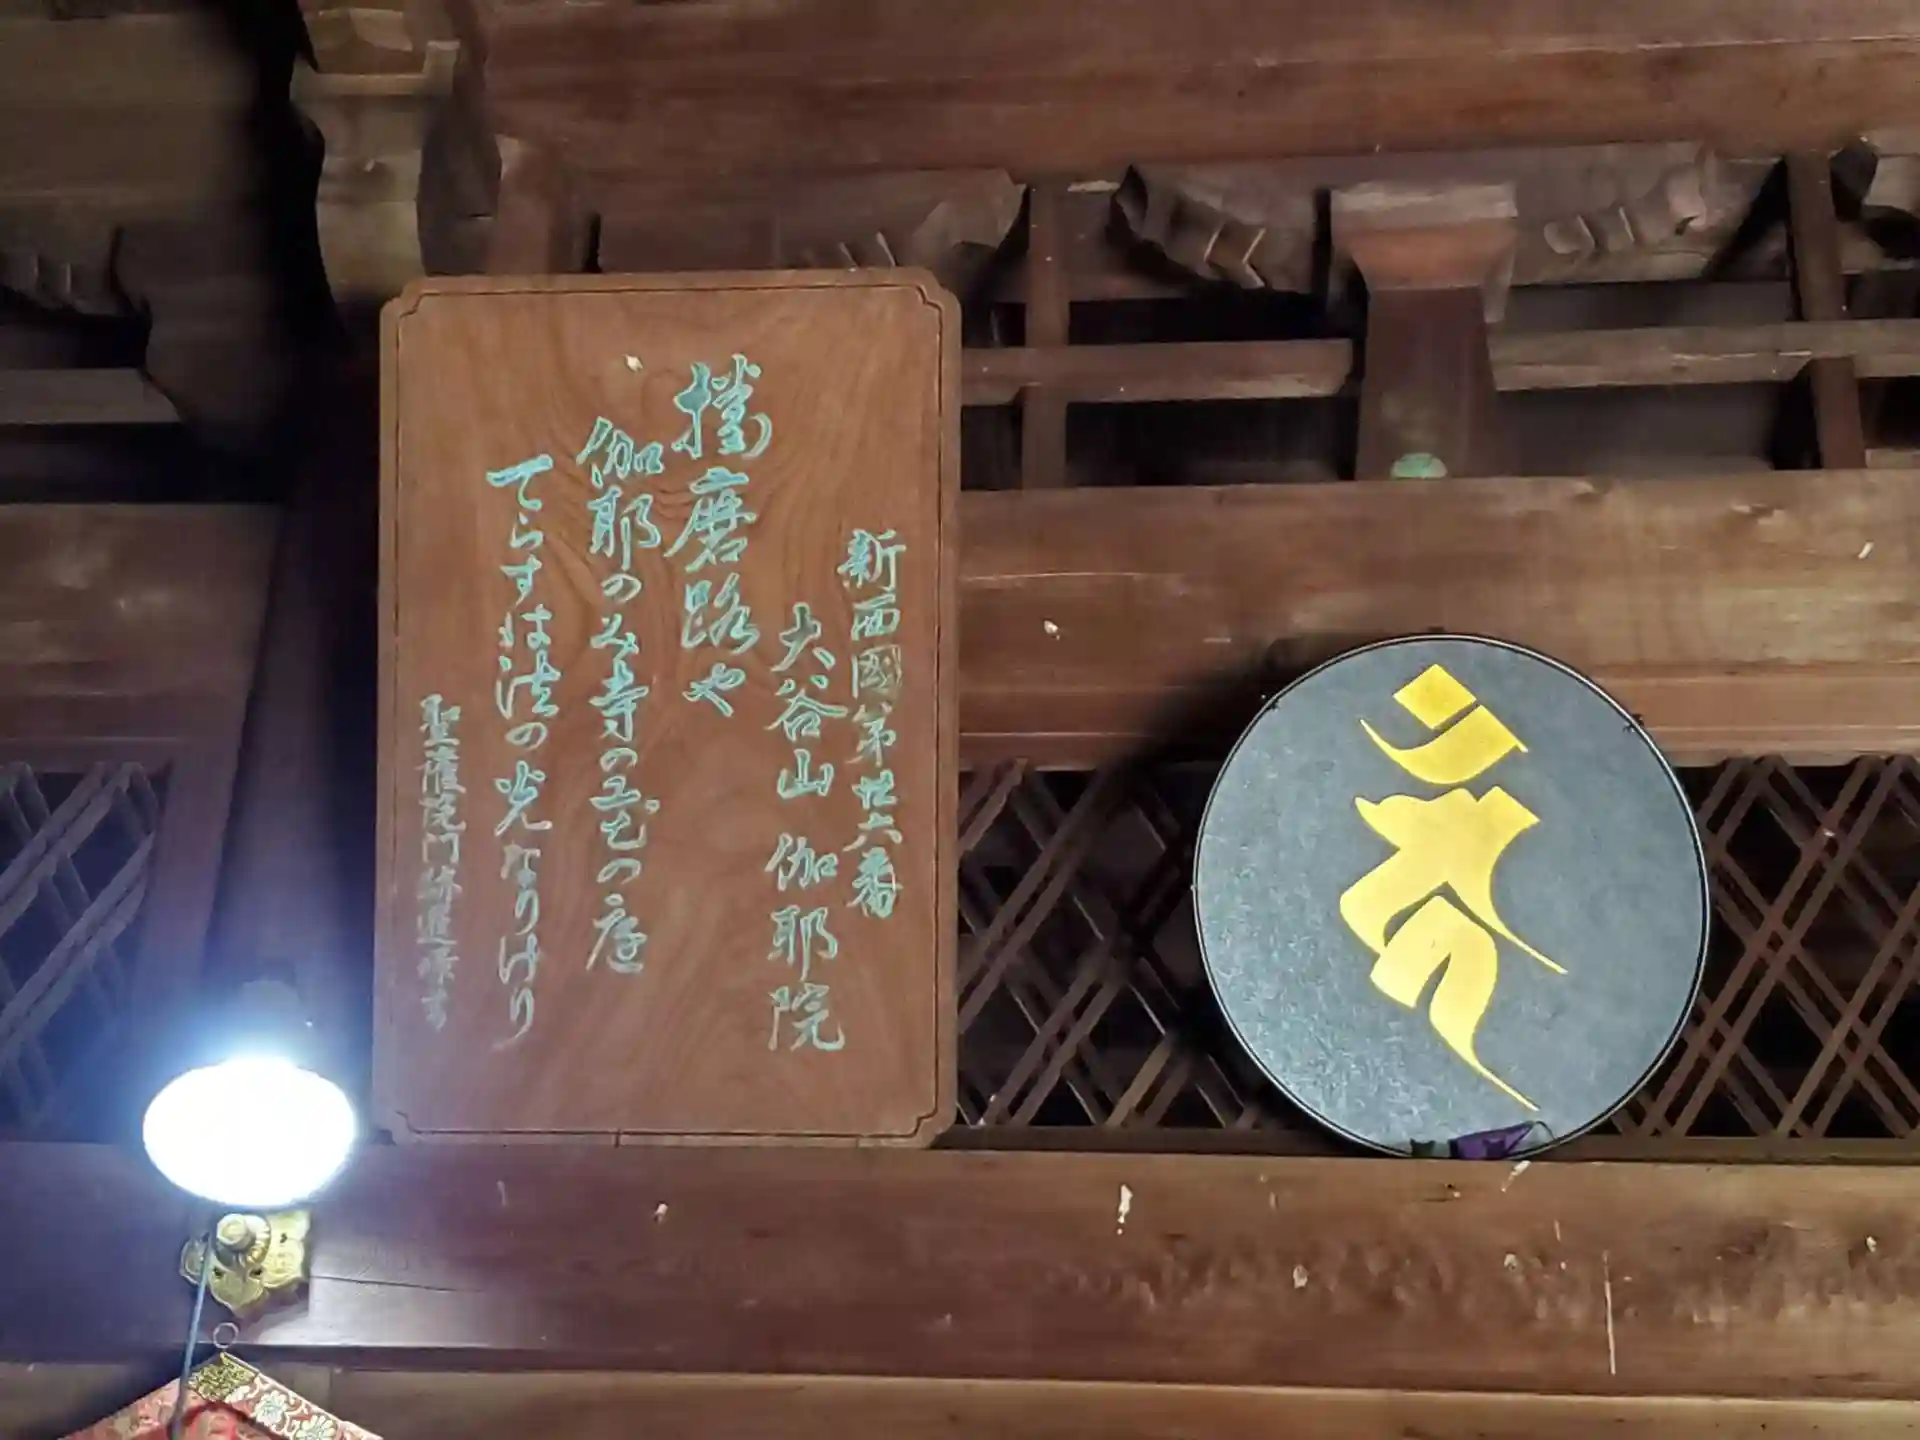 新西國第廿六番
大谷山 伽耶院
播磨路や
伽耶のみ寺の
庭
てらすは法の光なりけり
聖護院門跡